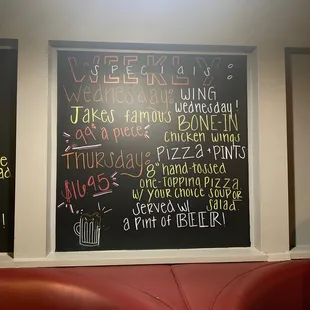 WEEKLY
specials:
Wednesday: WING
wednesday!
Jakes famous BONE-IN
chicken wings
99¢ a piece
Thursday: PIZZA + PINTS
$16.95
8" hand-tossed
one-topping PIZZA
w/ YOUR CHOICE SOUP OR
salad.
served w/
a Pint of BEER!